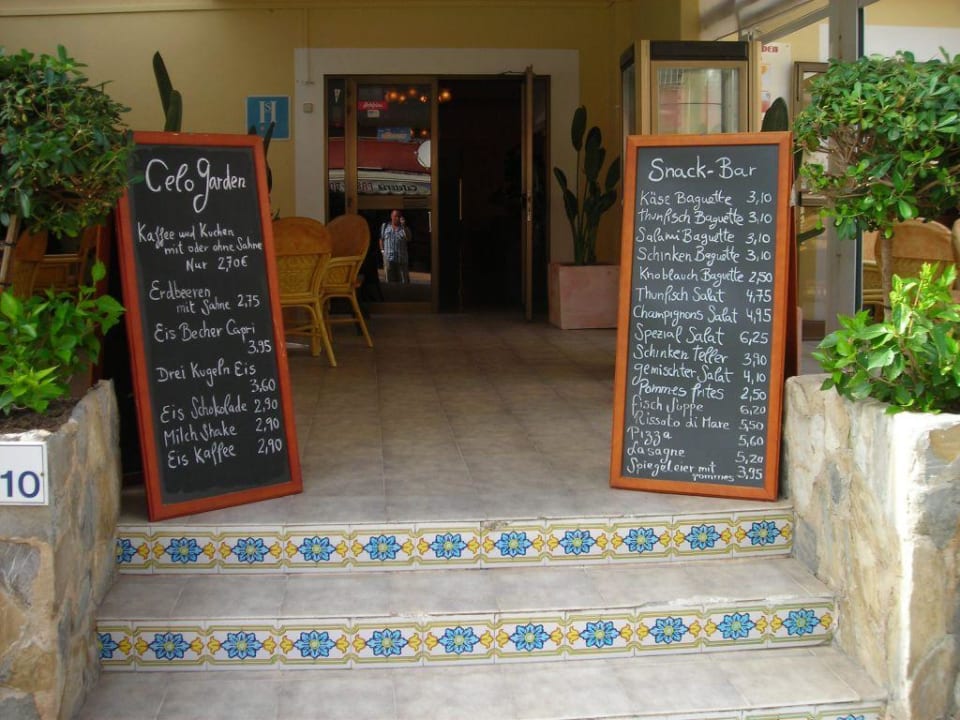 Celo Garden
Kaffee und Kuchen
mit oder ohne Sahne
Nur 2,70€
Erdbeeren
mit Sahne 2,75
Eis Becher Capri
3,95
Drei Kugeln Eis
3,60
Eis Schokolade 2,90
Milch Shake 2,90
Eis Kaffee 2,90
Snack-Bar
Käse Baguette 3,10
Thunfisch Baguette 3,10
Salami Baguette 3,10
Schinken Baguette 3,10
Knoblauch Baguette 2,50
Thunfisch Salat 4,75
Champignons Salat 4,95
Spezial Salat 6,25
Schinken Teller 3,90
gemischter Salat 4,10
Pommes frites 2,50
Fisch Suppe 6,20
Rissoto di Mare 5,50
Pizza 5,60
Lasagne 5,20
Spiegeleier mit 3,95
pommes
10
H
S
Cafeteria